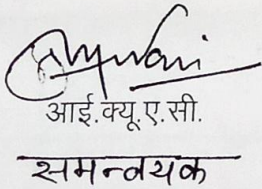 आई.क्यू.ए.सी.
समन्वयक